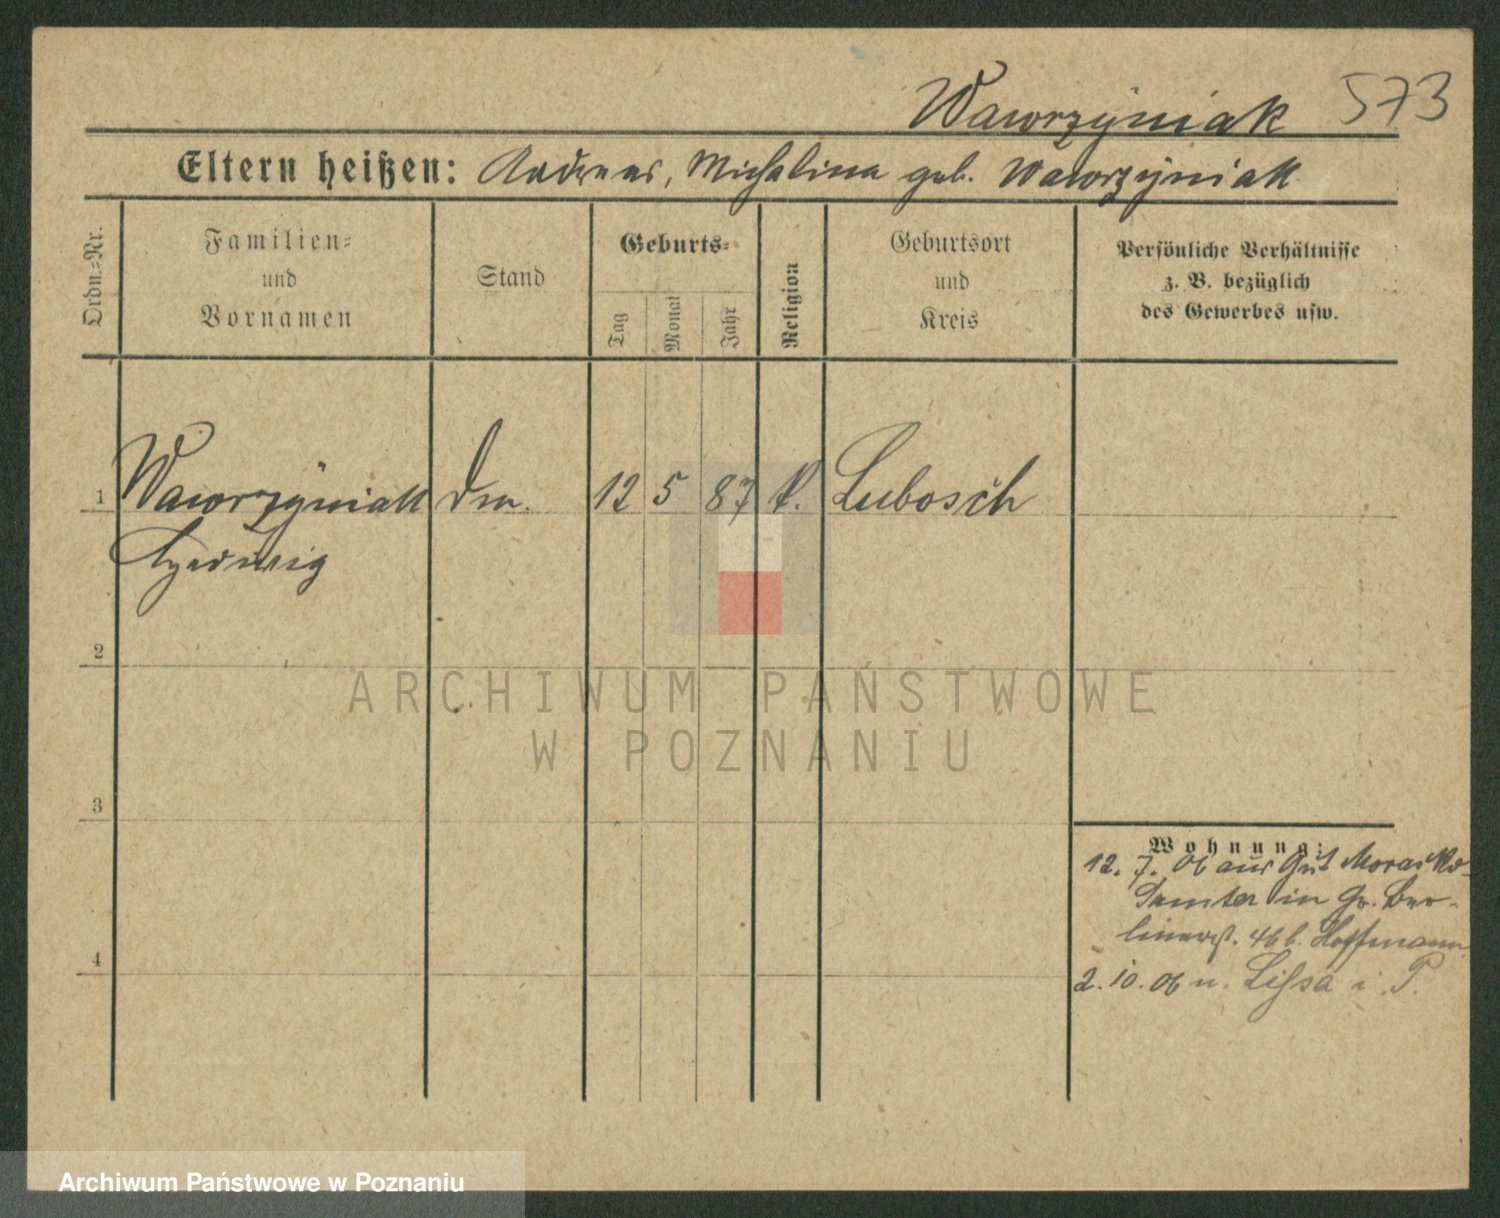 Wawrzÿniak 573
Eltern heißen: Andreas, Michalina geb. Wawrzÿniak
Ordn.=Nr.
Familien=
und
Vornamen
Stand
Geburts=
Tag
Monat
Jahr
Religion
Geburtsort
und
Kreis
Persönliche Verhältnisse
z. B. bezüglich
des Gewerbes usw.
1 Wawrzÿniak Dm. 12 5 87 k. Lubosch
Hedwig
2
ARCHIWUM PAŃSTWOWE
W POZNANIU
3
Wohnung:
12. 7. 06 aus Gut Morasko
Samter in Gr. Ber-
linerst. 46 b. Hoffmann
4
2. 10. 06 n. Lissa i. P.
Archiwum Państwowe w Poznaniu